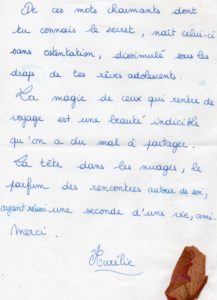 De ces mots charmants dont
tu connais le secret, naît celui-ci
sans ostentation, dissimulé sous les
draps de tes rêves adolescents.
La magie de ceux qui rentre de
voyage est une beauté indicible
qu'on a du mal à partager.
La tête dans les nuages, le
parfum des rencontres autour de soi,
ayant réussi une seconde d'une vie, ami.
Merci.
Aurélie